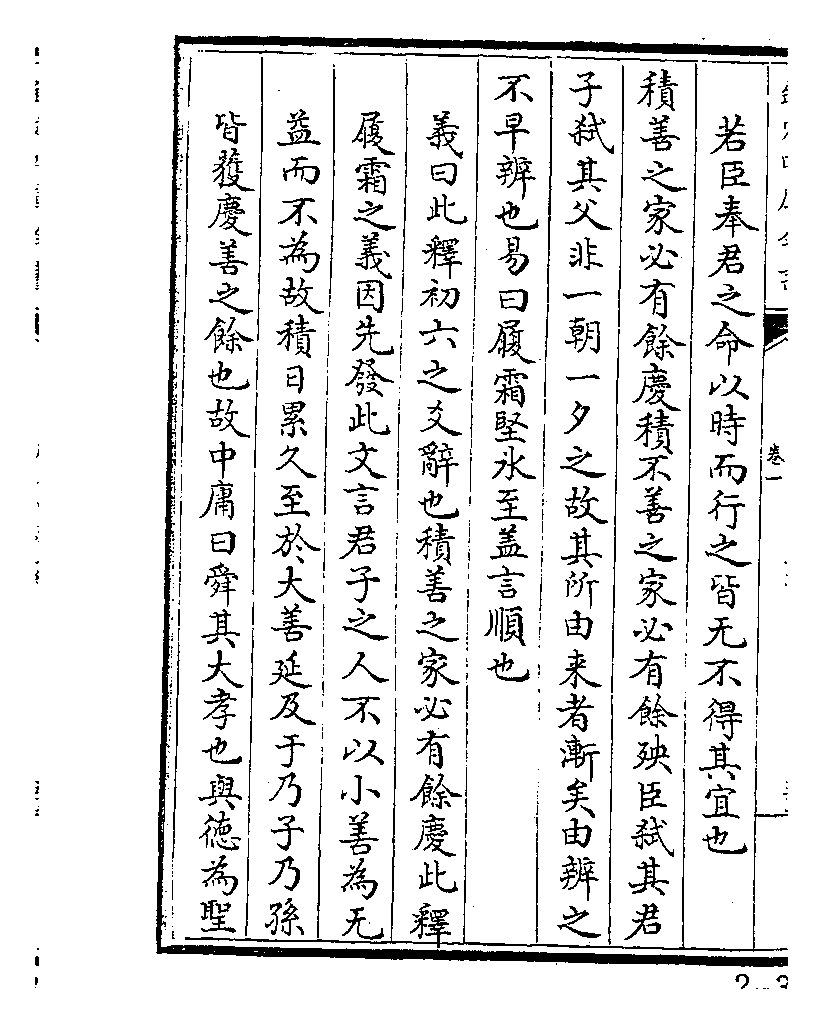 卷一
若臣奉君之命以時而行之皆无不得其宜也
積善之家必有餘慶積不善之家必有餘殃臣弒其君
子弒其父非一朝一夕之故其所由来者漸矣由辨之
不早辨也易曰履霜堅氷至盖言順也
義曰此釋初六之爻辭也積善之家必有餘慶此釋
履霜之義因先發此文言君子之人不以小善為无
益而不為故積日累久至於大善延及于乃子乃孫
皆獲慶善之餘也故中庸曰舜其大孝也與徳為聖